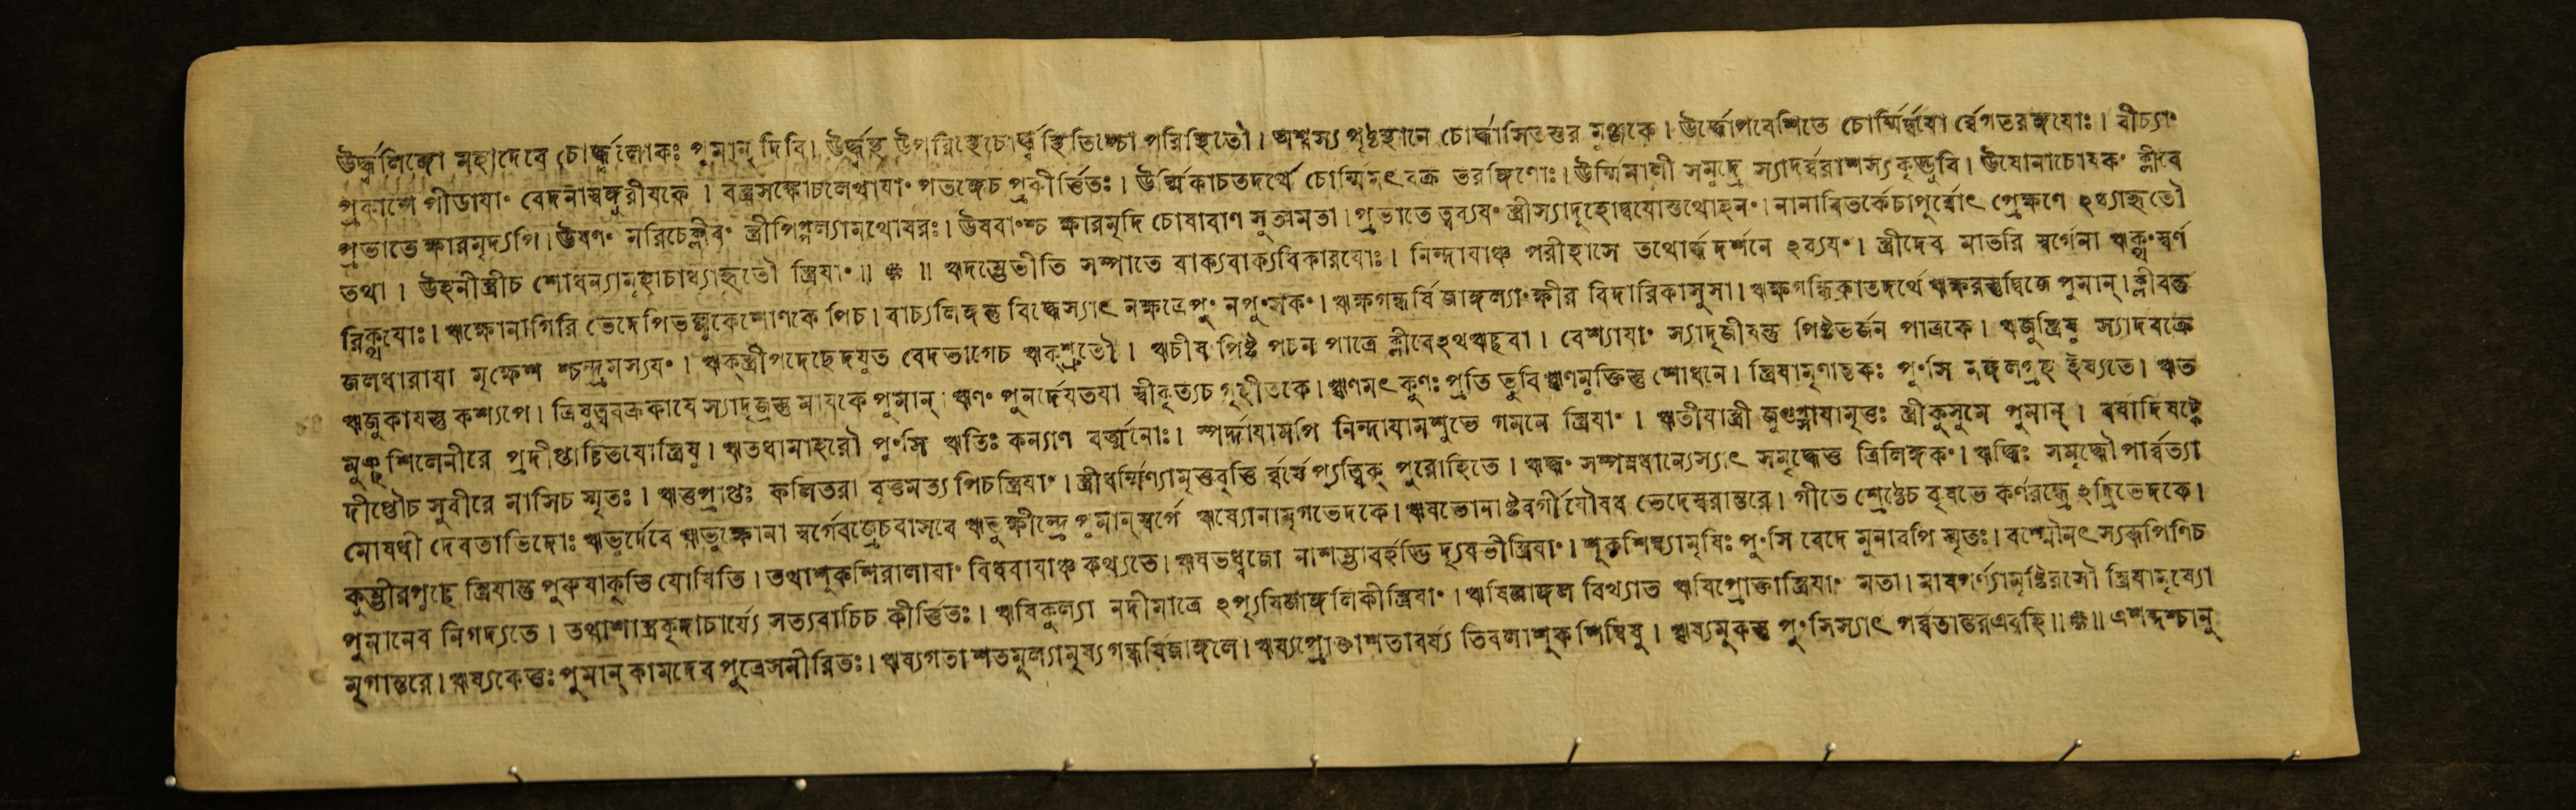 ঊর্দ্ধলিঙ্গো মহাদেবে চোর্দ্ধলোকঃ পুমান্ দিবি। ঊর্দ্ধস্থ উপরিস্থেচোর্দ্ধস্থিতিশ্চো পরিস্থিতৌ। অশ্বস্য পৃষ্টস্থানে চোর্দ্ধাসিতশুর মুঞ্জকে। ঊর্দ্ধোপবেশিতে চোর্ম্মির্দ্বযো র্ব্বেগতরঙ্গযোঃ। বীচ্যাং
প্রকাশে পীডাযাং বেদনাস্বঙ্গুরীযকে। বস্ত্রসঙ্কোচলেখাযাং পতঙ্গেচ প্রকীর্ত্তিতঃ। ঊর্ম্মিকাচতদর্থে চোর্ম্মিমৎ বক্র তরঙ্গিণোঃ। ঊর্ম্মিমালী সমুদ্রে স্যাদর্ব্বরাশস্যকৃদ্ভুবি। ঊষোনাচোষকং ক্লীবে
প্রভাতে ক্ষারমৃদ্যপি। ঊষণং মরিচেক্লীবং স্ত্রীপিপ্পল্যামথোষরঃ। ঊষবাংশ্চ ক্ষারমৃদি চোষাবাণ সুতামতা। প্রভাতে ত্বব্যযং স্ত্রীস্যাদূহোদ্বযোস্তথোহনং। নানাবিতর্কেচাপূর্ব্বোৎ প্রেক্ষণে ঽধ্যাহৃতৌ
তথা। ঊহনীস্ত্রীচ শোধন্যামূহাচাধ্যাহৃতৌ স্ত্রিযাং॥ ꣸ ॥ ঋদম্ভেভীতি সম্পাতে বাক্যবাক্যবিকারযোঃ। নিন্দাযাঞ্চ পরীহাসে তথোর্দ্ধ দর্শনে ঽব্যযং। স্ত্রীদেব মাতরি স্বর্গেনা ঋক্থংস্বর্ণ
রিক্থযোঃ। ঋক্ষোনাগিরি ভেদেপিভল্লুকেশোণকে পিচ। বাচ্যলিঙ্গন্তু বিদ্ধেস্যাৎ নক্ষত্রেপুং নপুংসকং। ঋক্ষগন্ধর্ষি জাঙ্গল্যাংক্ষীর বিদারিকাসুসা। ঋক্ষগন্ধিকাতদর্থে ঋক্ষরস্তুদ্বিজে পুমান্। ক্লীবন্তু
জলধারাযা মৃক্ষেশ শ্চন্দ্রমস্যযং। ঋক্স্ত্রীপদেছেদযুত বেদভাগেচ ঋক্শ্রুতৌ। ঋচীষ পিষ্ট পচন পাত্রে ক্লীবেঽথঋছবা। বেশ্যাযাং স্যাদৃজীষন্তু পিষ্টভর্জন পাত্রকে। ঋজুস্ত্রিষু স্যাদবক্রে
ঋজুকাযস্তু কশ্যপে। ত্রিযুত্ববক্রকাযে স্যাদৃজস্তু মাষকে পুমান্। ঋণং পুনর্দেযতযা স্বীকৃত্যচ গৃহীতকে। ঋণমৎ কুণঃ প্রতি ভুবি ঋণমুক্তিস্তু শোধনে। স্ত্রিযামৃণান্তকঃ পুংসি মঙ্গলগ্রহ ইষ্যতে। ঋত
মুঞ্ছশিলেনীরে প্রদীপ্তার্চ্চিতযোস্ত্রিষু। ঋতধামাহরৌ পুংসি ঋতিঃ কল্যাণ বর্ত্মনোঃ। স্পর্দ্ধাযামপি নিন্দাযামশুভে গমনে স্ত্রিযাং। ঋতীযাস্ত্রী জুগুপ্সাযামৃত্তঃ স্ত্রীকুসুমে পুমান্। বর্ষাদিষট্কে
দীপ্তৌচ সুবীরে মাসিচ স্মৃতঃ। ঋত্তপ্রাপ্তঃ ফলিতরা বৃত্তমত্য পিচস্ত্রিযাং। স্ত্রীধর্ম্মিণ্যামৃত্তবৃত্তি র্ব্বর্ষেপ্যত্বিক্ পুরোহিতে। ঋদ্ধং সম্পন্নধান্যেস্যাৎ সমৃদ্ধেত্ত ত্রিলিঙ্গকং। ঋদ্ধিঃ সমৃদ্ধৌপার্ব্বত্যা
মোষধী দেবতাভিদোঃ ঋভুর্দেবে ঋভুক্ষোনা স্বর্গেবজ্রেচবাসবে ঋভুক্ষীন্দ্রে পুমান্স্বর্গে ঋষ্যোনামৃগভেদকে। ঋষভোনাষ্টবর্গীযৌষধ ভেদেস্বরান্তরে। গীতে শ্রেষ্টেচ বৃষভে কর্ণরন্ধ্রে ঽদ্রিভেদকে।
কুম্ভীরপুছে স্ত্রিযান্তু পুরুষাকৃত্তি যোষিতি। তথাশূকশিরালাযাং বিধবাযাঞ্চ কথ্যতে। ঋষভধ্বজো নাশম্ভাবর্হদ্ভি দৃষভীস্ত্রিযাং। শূকশিম্ব্যামৃষিঃ পুংসি বেদে মুনাবপি স্মৃতঃ। বশ্মৌমৎস্যরূপিণিচ
পুমানেব নিগদ্যতে। তথাশাস্ত্রকৃদাচার্য্যে সত্যবাচিচ কীর্ত্তিতঃ। ঋষিকুল্যা নদীমাত্রে ঽপৃষিজাঙ্গলিকীস্ত্রিযাং। ঋষিজাঙ্গল বিথ্যাত ঋষিপ্রোক্তাস্ত্রিযাং মতা। মাষপর্ণ্যামৃষ্টিরসৌ স্ত্রিযামৃষ্যো
মৃগান্তরে। ঋষ্যকেত্তঃ পুমান্ কামদেব পুত্রেসমীরিতঃ। ঋষ্যগতা শতমূল্যামৃষ্যগন্ধর্ষিজাঙ্গলে। ঋষ্যপ্রোক্তাশতাবর্য্য তিবলাশূক শিম্বিষু। ঋষ্যমূকস্তু পুংসিস্যাৎ পর্ব্বতান্তরএবহি॥ ꣸॥ এশব্দশ্চানু